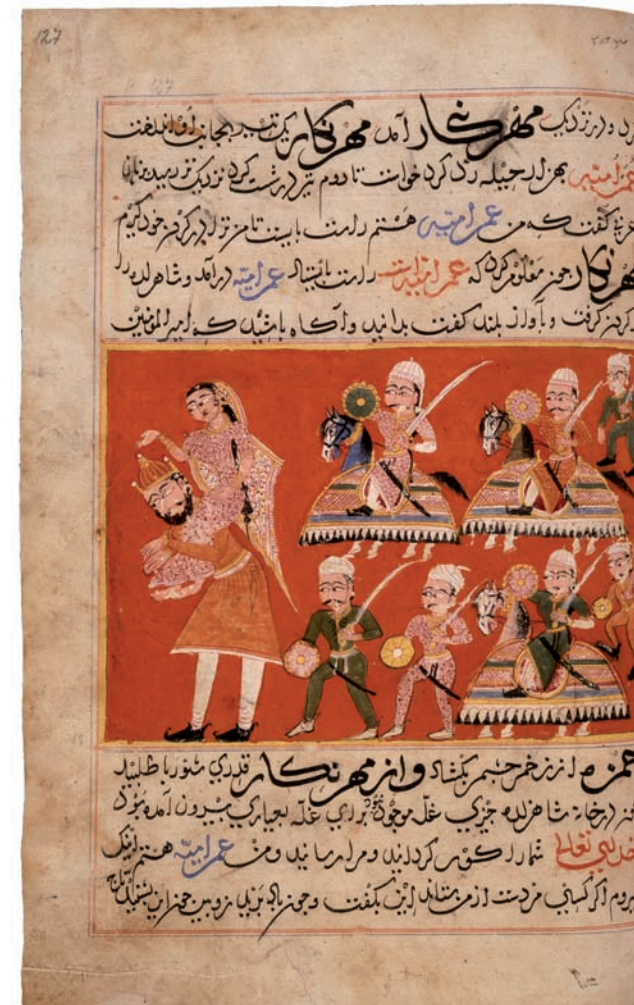 127
نزدیک مهر نگار آمد مهر نگار یک تیر بجانب او انداخت
عمر امیه بهزار حیله رد کرد خواست تا دوم تیر درشت کرد نزدیک تر رسید
گفت که من عمر امیه هستم راست بایست تا من ترا در گردن خود گیرم
مهر نگار چون معلوم کرد که عمر امیه است راست بایستاد عمر امیه درآمد و شاهزاده را
در گردن گرفت و بآواز بلند گفت بدانید و آگاه باشید که امیر المومنین
حمزه از زخم چشم بکشاد و از مهر نگار قدری شوربا طلبید
در خانه شاهزاده چیزی غله موجود نبود برای غله بعیاری بیرون آمده بودن
خدای تعالی شما را کور گردانید و مرا رسانید و من عمر امیه هستم اینک
میروم اگر کسانی مردست از من بستاند این بگفت و چون باد بزید زوبین چون این بشنید